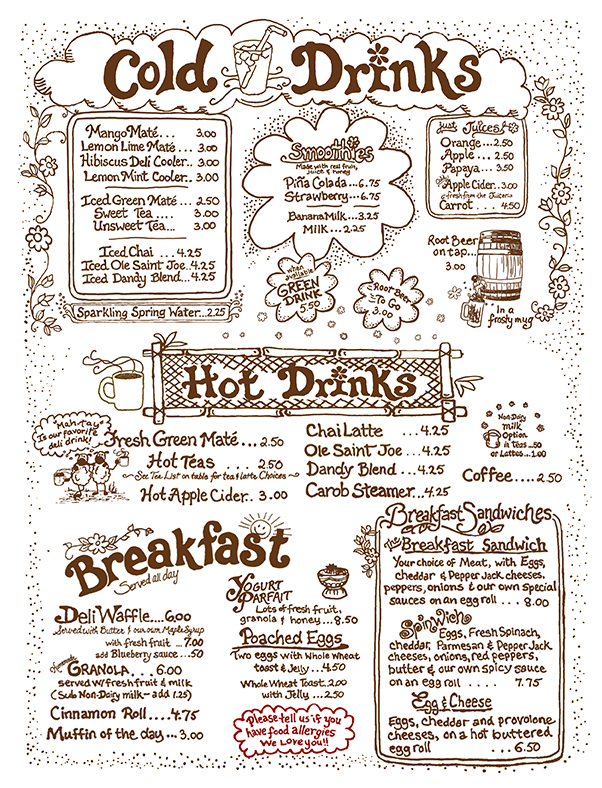 Cold Drinks
Mango Maté... 3.00
Lemon Lime Maté... 3.00
Hibiscus Deli Cooler.. 3.00
Lemon Mint Cooler.. 3.00
Iced Green Maté... 2.50
Sweet Tea.... 3.00
Unsweet Tea... 3.00
Iced Chai .... 4.25
Iced Ole Saint Joe. 4.25
Iced Dandy Blend... 4.25
Sparkling Spring Water...2.25
Smoothies
Made with real fruit,
juice & honey
Piña Colada...6.75
Strawberry...6.75
Banana Milk...3.25
Milk...2.25
when
available
GREEN
DRINK
5.50
Root Beer
To Go
3.00
Just Juices!
Orange...2.50
Apple...2.50
Papaya...3.50
Apple Cider..3.00
fresh from the Juiceria
Carrot... 4.50
Root Beer
on tap...
3.00
In a
frosty mug
Hot Drinks
"Mah-tay"
Is our favorite
deli drink!
Fresh Green Maté...2.50
Hot Teas 2.50
See Tea List on table for tea & latte Choices
Hot Apple Cider.. 3.00
Chai Latte ....4.25
Ole Saint Joe ...4.25
Dandy Blend...4.25
Carob Steamer...4.25
Non Dairy
Milk
Option
in Teas ..50
or Lattes...1.00
Coffee.....2.50
Breakfast
Served all day
Deli Waffle....6.00
Served with Butter & our own Maple Syrup
with fresh fruit ...7.00
add Blueberry sauce ..50
Homemade
GRANOLA... 6.00
served w/fresh fruit & milk
(Sub Non-Dairy milk - add 1.25)
Cinnamon Roll....4.75
Muffin of the day...3.00
YOGURT
PARFAIT
Lots of fresh fruit,
granola & honey...8.50
Poached Eggs
Two eggs with Whole Wheat
toast & Jelly....4.50
Whole Wheat Toast. 2.00
with Jelly ...2.50
Please tell us if you
have food allergies
We Love you!!
Breakfast Sandwiches
The Breakfast Sandwich
Your choice of Meat, with Eggs,
cheddar & Pepper Jack cheeses,
peppers, onions & our own special
sauces on an egg roll . . . 8.00
Spinwich
Eggs, Fresh Spinach,
cheddar, Parmesan & Pepper Jack
cheeses, onions, red peppers,
butter & our own spicy sauce
on an egg roll . . . . 7.75
Egg & Cheese
Eggs, cheddar and provolone
cheeses, on a hot buttered
egg roll . . . 6.50